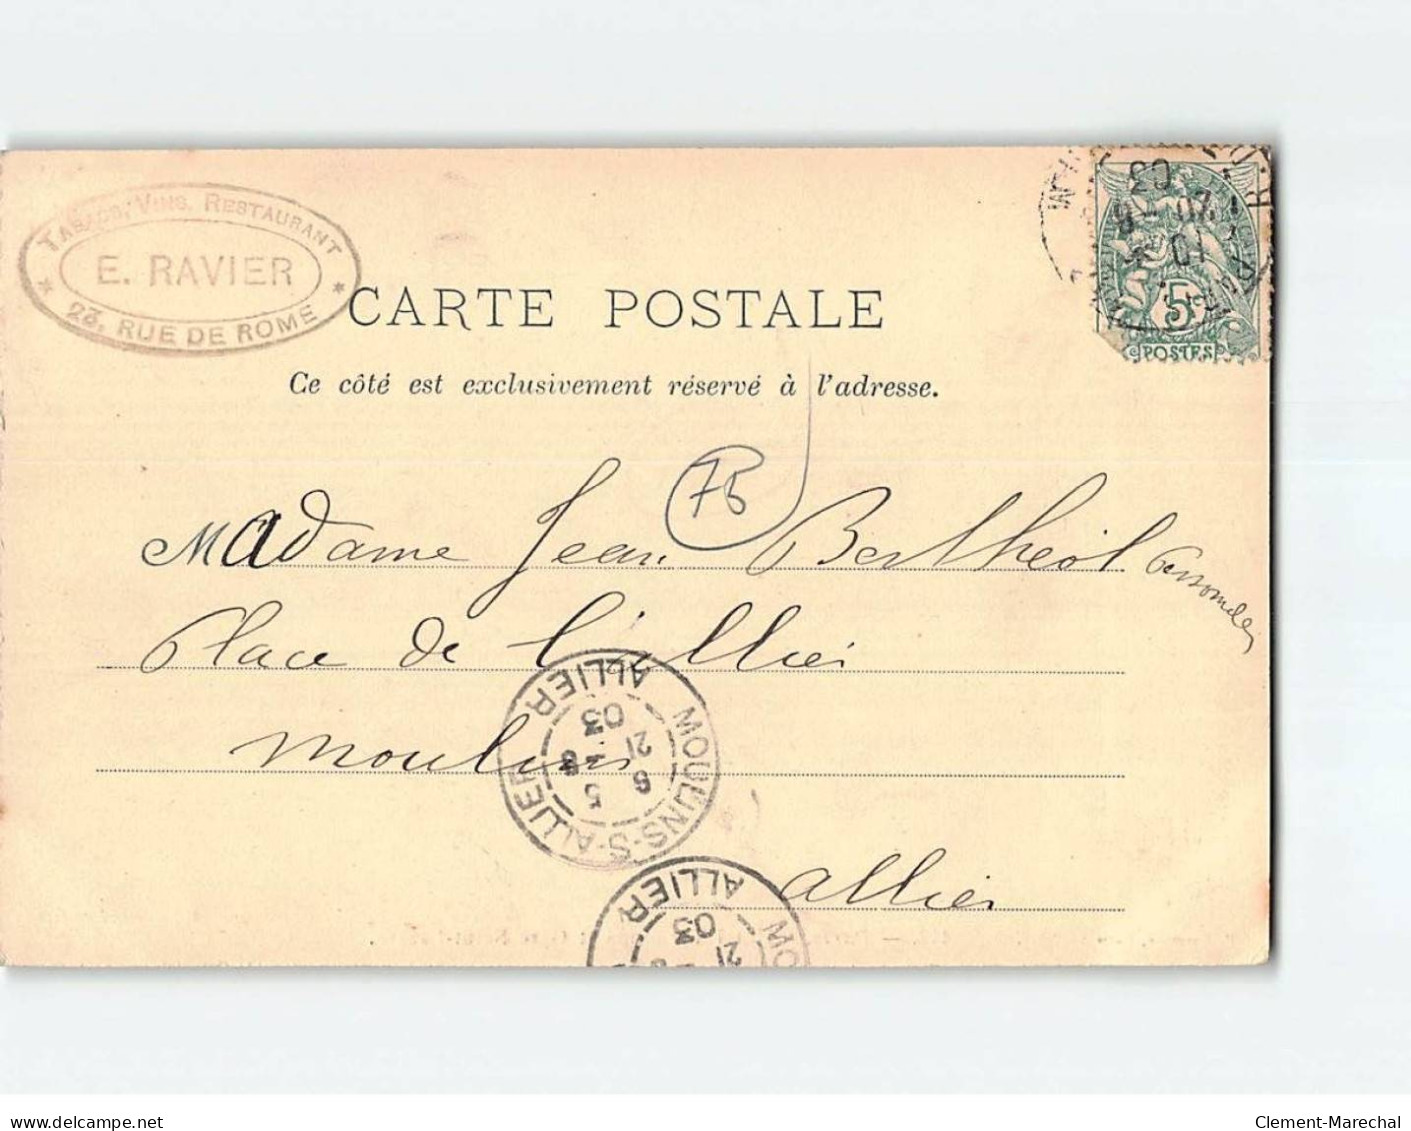 TABACS, VINS. RESTAURANT
E. RAVIER
23, RUE DE ROME
CARTE POSTALE
Ce côté est exclusivement réservé à l'adresse.
5
POSTES
10
20
03
75
Madame Jean Berthéol
Place de l'allier
Moulins
allier
MOULINS-S-ALLIER
6 5
21 -8
03
ALLIER
MO
21
03
ALLIER
www.delcampe.net
Clement-Marechal